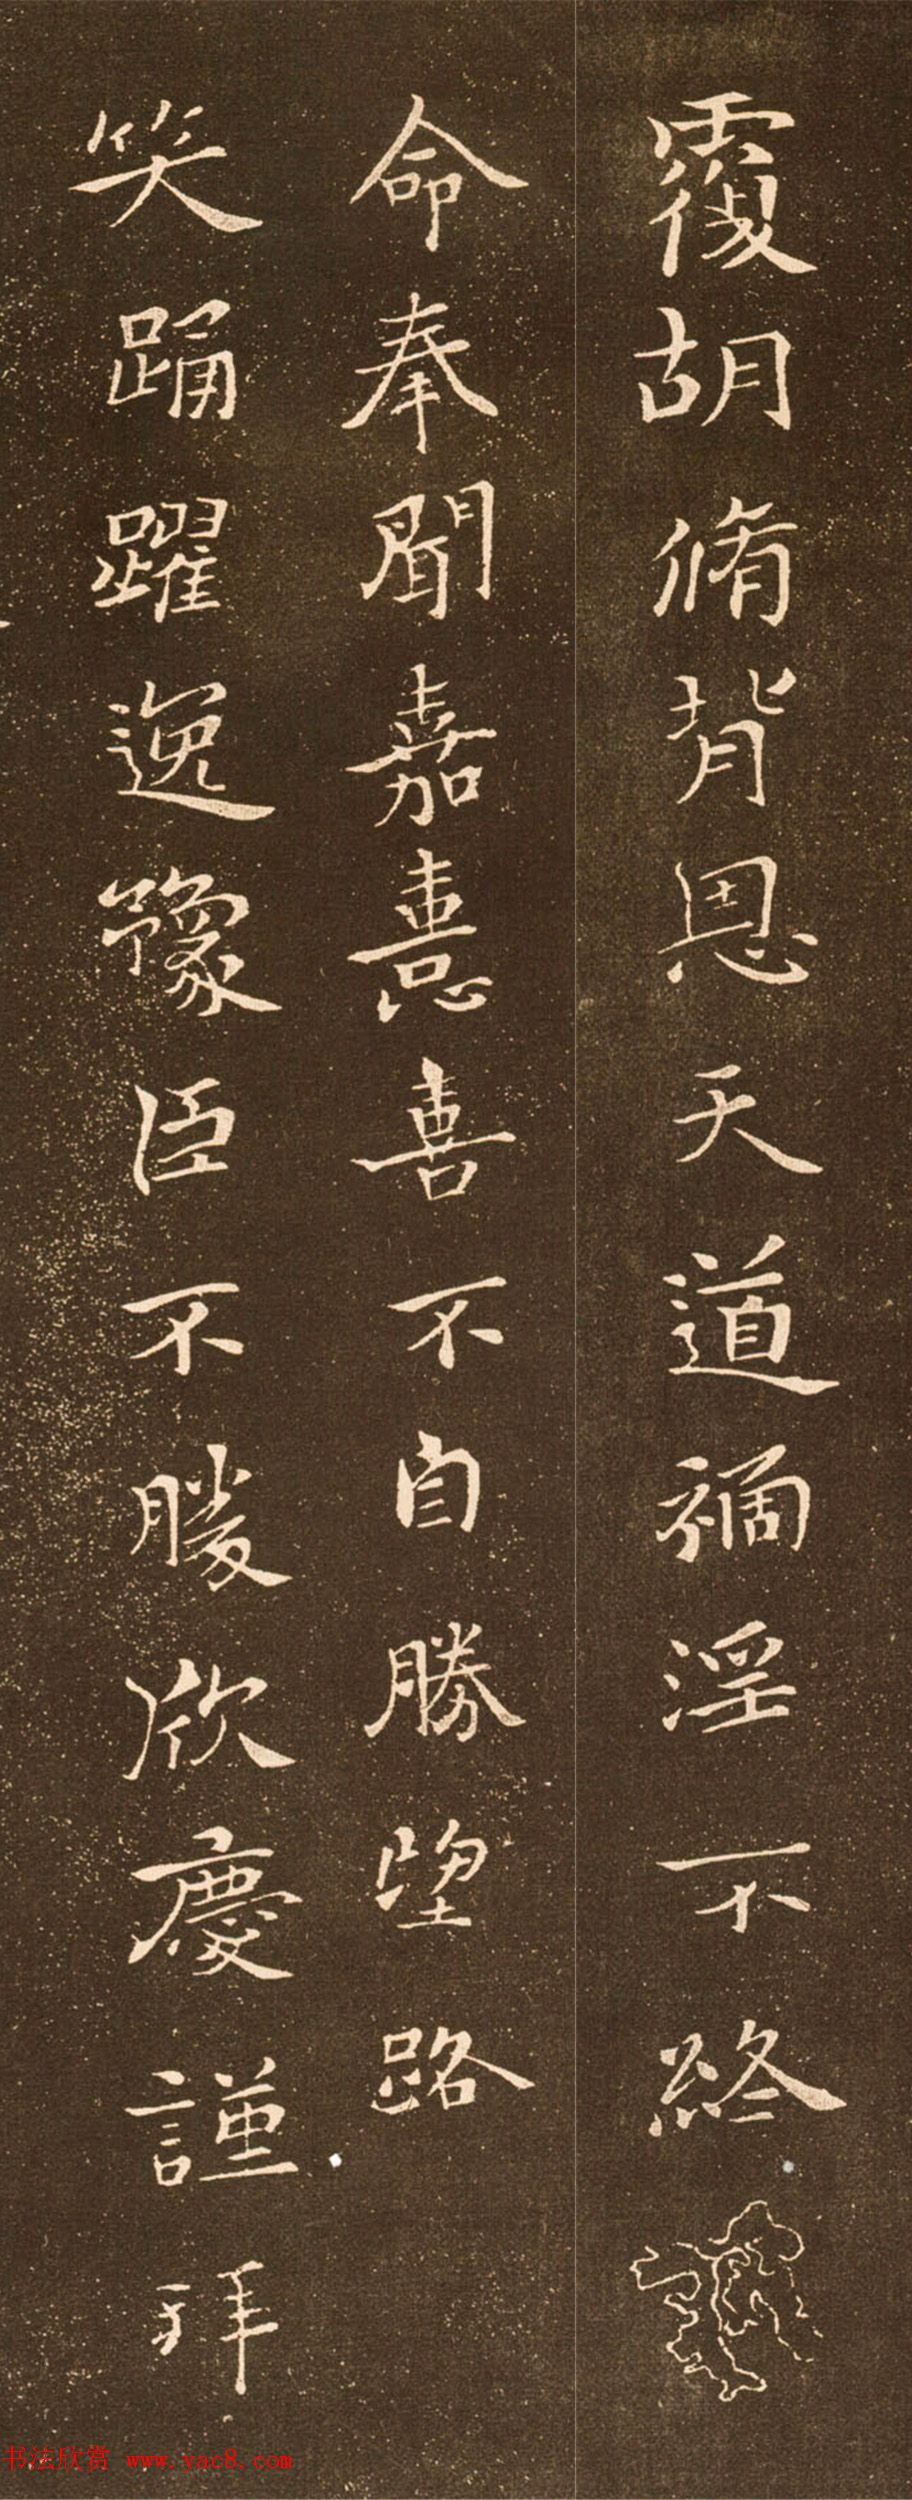 覆胡脩背恩天道禍淫不終
命奉聞嘉憙喜不自勝望路
笑踊躍逸豫臣不勝欣慶謹拜
书法欣赏 www.yac8.com